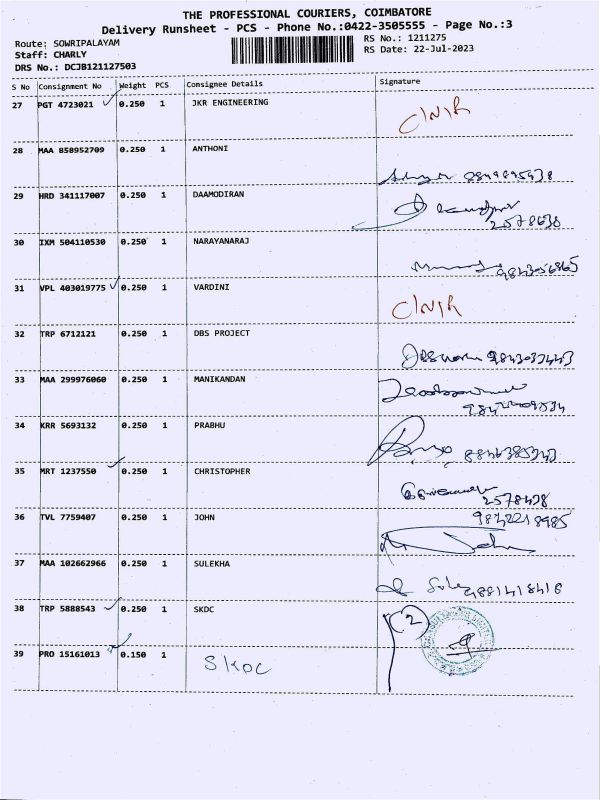 THE PROFESSIONAL COURIERS, COIMBATORE
Delivery Runsheet - PCS - Phone No.:0422-3505555 - Page No.:3
Route: SOWRIPALAYAM
RS No.: 1211275
Staff: CHARLY
RS Date: 22-Jul-2023
DRS No.: DCJB121127503
S No Consignment No Weight PCS Consignee Details Signature
27 PGT 4723021 0.250 1 JKR ENGINEERING
28 MAA 858952709 0.250 1 ANTHONI
29 HRD 341117007 0.250 1 DAAMODIRAN
2578630
30 IXM 504110530 0.250 1 NARAYANARAJ
9843056865
31 VPL 403019775 0.250 1 VARDINI
32 TRP 6712121 0.250 1 DBS PROJECT
33 MAA 299976060 0.250 1 MANIKANDAN
34 KRR 5693132 0.250 1 PRABHU
35 MRT 1237550 0.250 1 CHRISTOPHER
36 TVL 7759407 0.250 1 JOHN
9842218985
John
37 MAA 102662966 0.250 1 SULEKHA
38 TRP 5888543 0.250 1 SKDC
2
39 PRO 15161013 0.150 1 SKDC